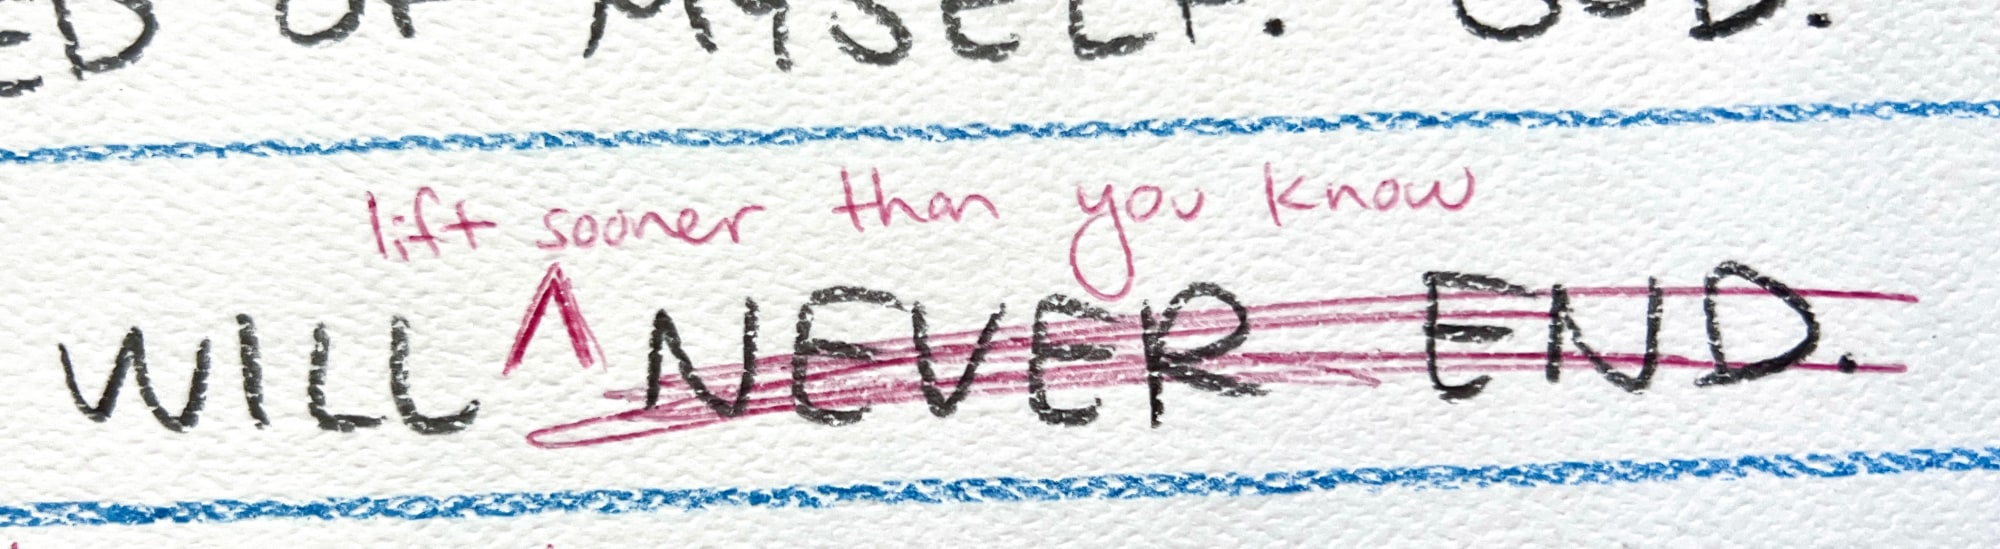 OF MYSELF. GOD.
lift sooner than you know
WILL ^ NEVER END.